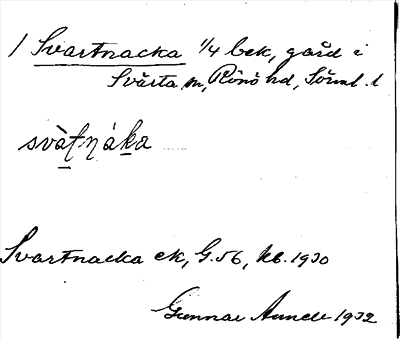 1 Svartnacka 1/4 bek, gård i
Svärta sn, Rönö hd, Sörml. l
svàt̠ŋák̠a
Svartnacka ek, G.56, kb. 1930
Gunnar 1932